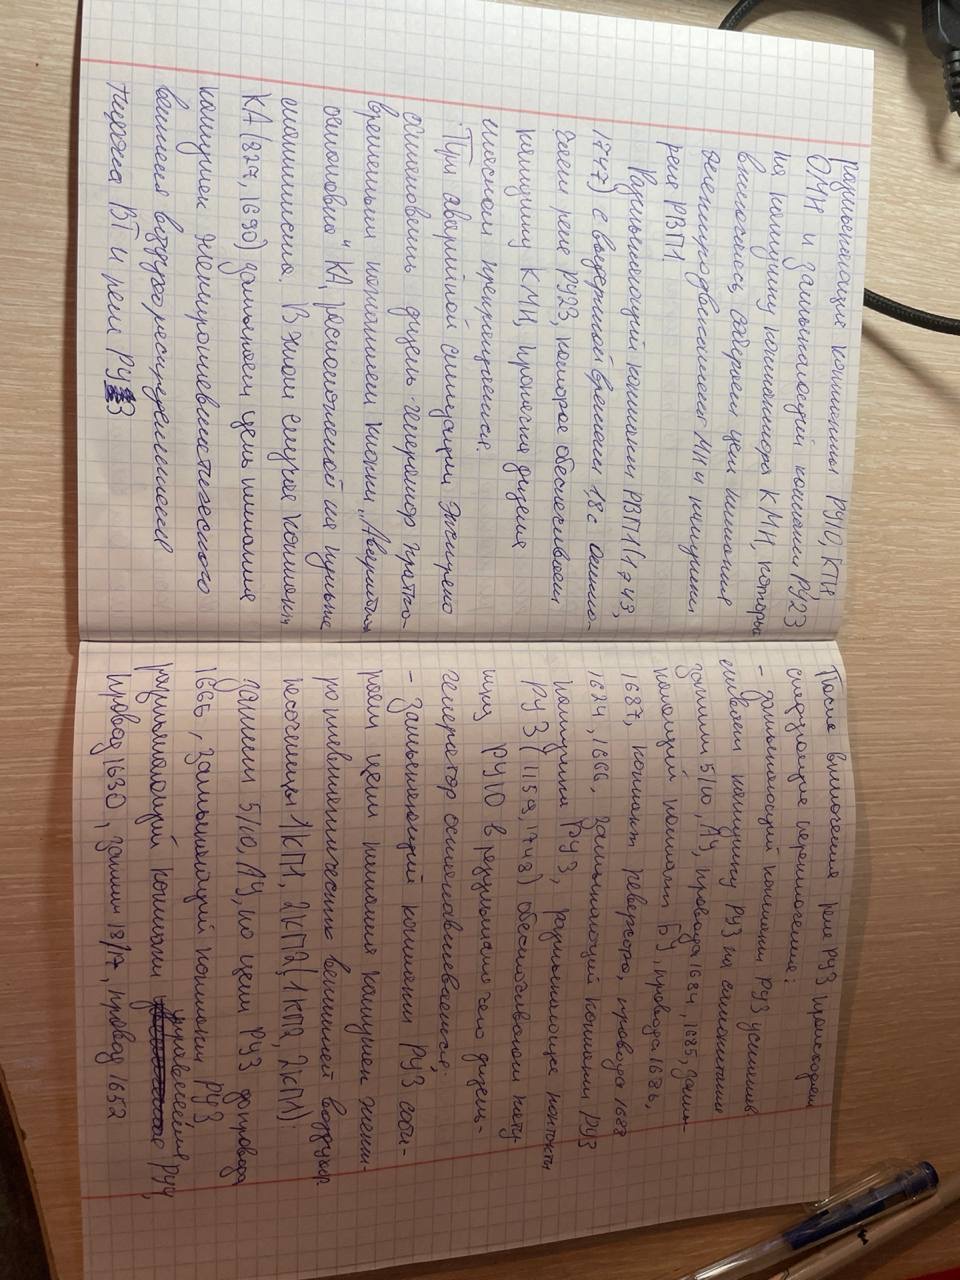 размыкающие контакты РУ10, КТН
ОМН и замыкающий контакт РУ23
на катушку контактора КМН, который
включаясь, собирает цепи питания
электродвигателя МН и катушки
реле РВП1
Размыкающий контакт РВП1 (1743,
1747) с выдержкой времени 1,8с
цепи реле РУ23, которое обесточивает
катушку КМН, прокачка дизеля
маслом прекращается.
При аварийной ситуации экстренно
остановить дизель-генератор кратко-
временным нажатием кнопки „Аварийная
остановка" КА, расположенной на пульте
машиниста. В этом случае контакт
КА (827, 1690) замыкает цепь питания
катушки электропневматического
вентиля воздухораспределителя
тифона ВТ и реле РУ3
После включения реле РУ3 происходят
следующие переключения:
- замыкающий контакт РУ3
питает катушку РУ3 на самопитание
зажим 5/10, АУ, провода 1684, 1685, замы-
кающий контакт БУ, провода 1686,
1687, контакт реверсора, провода 1688
1684, 1666, замыкающий контакт РУ3
катушка РУ3, размыкающие контакты
РУ3 (1159, 1748) обесточивают кату
шку РУ10 в результате чего дизель-
генератор останавливается.
- Замыкающий контакт РУ3 соби-
рает цепи питания катушек элект-
ропневматических вентилей воздухор
песочницы 1КПН, 2КП2 (1КПв, 2КПН)
зажим 5/10, АУ, по цепи РУ3 до провода
1666, замыкающий контакт РУ3
размыкающий контакт управления РУ4,
провод 1630, зажим 18/17, провод 1652